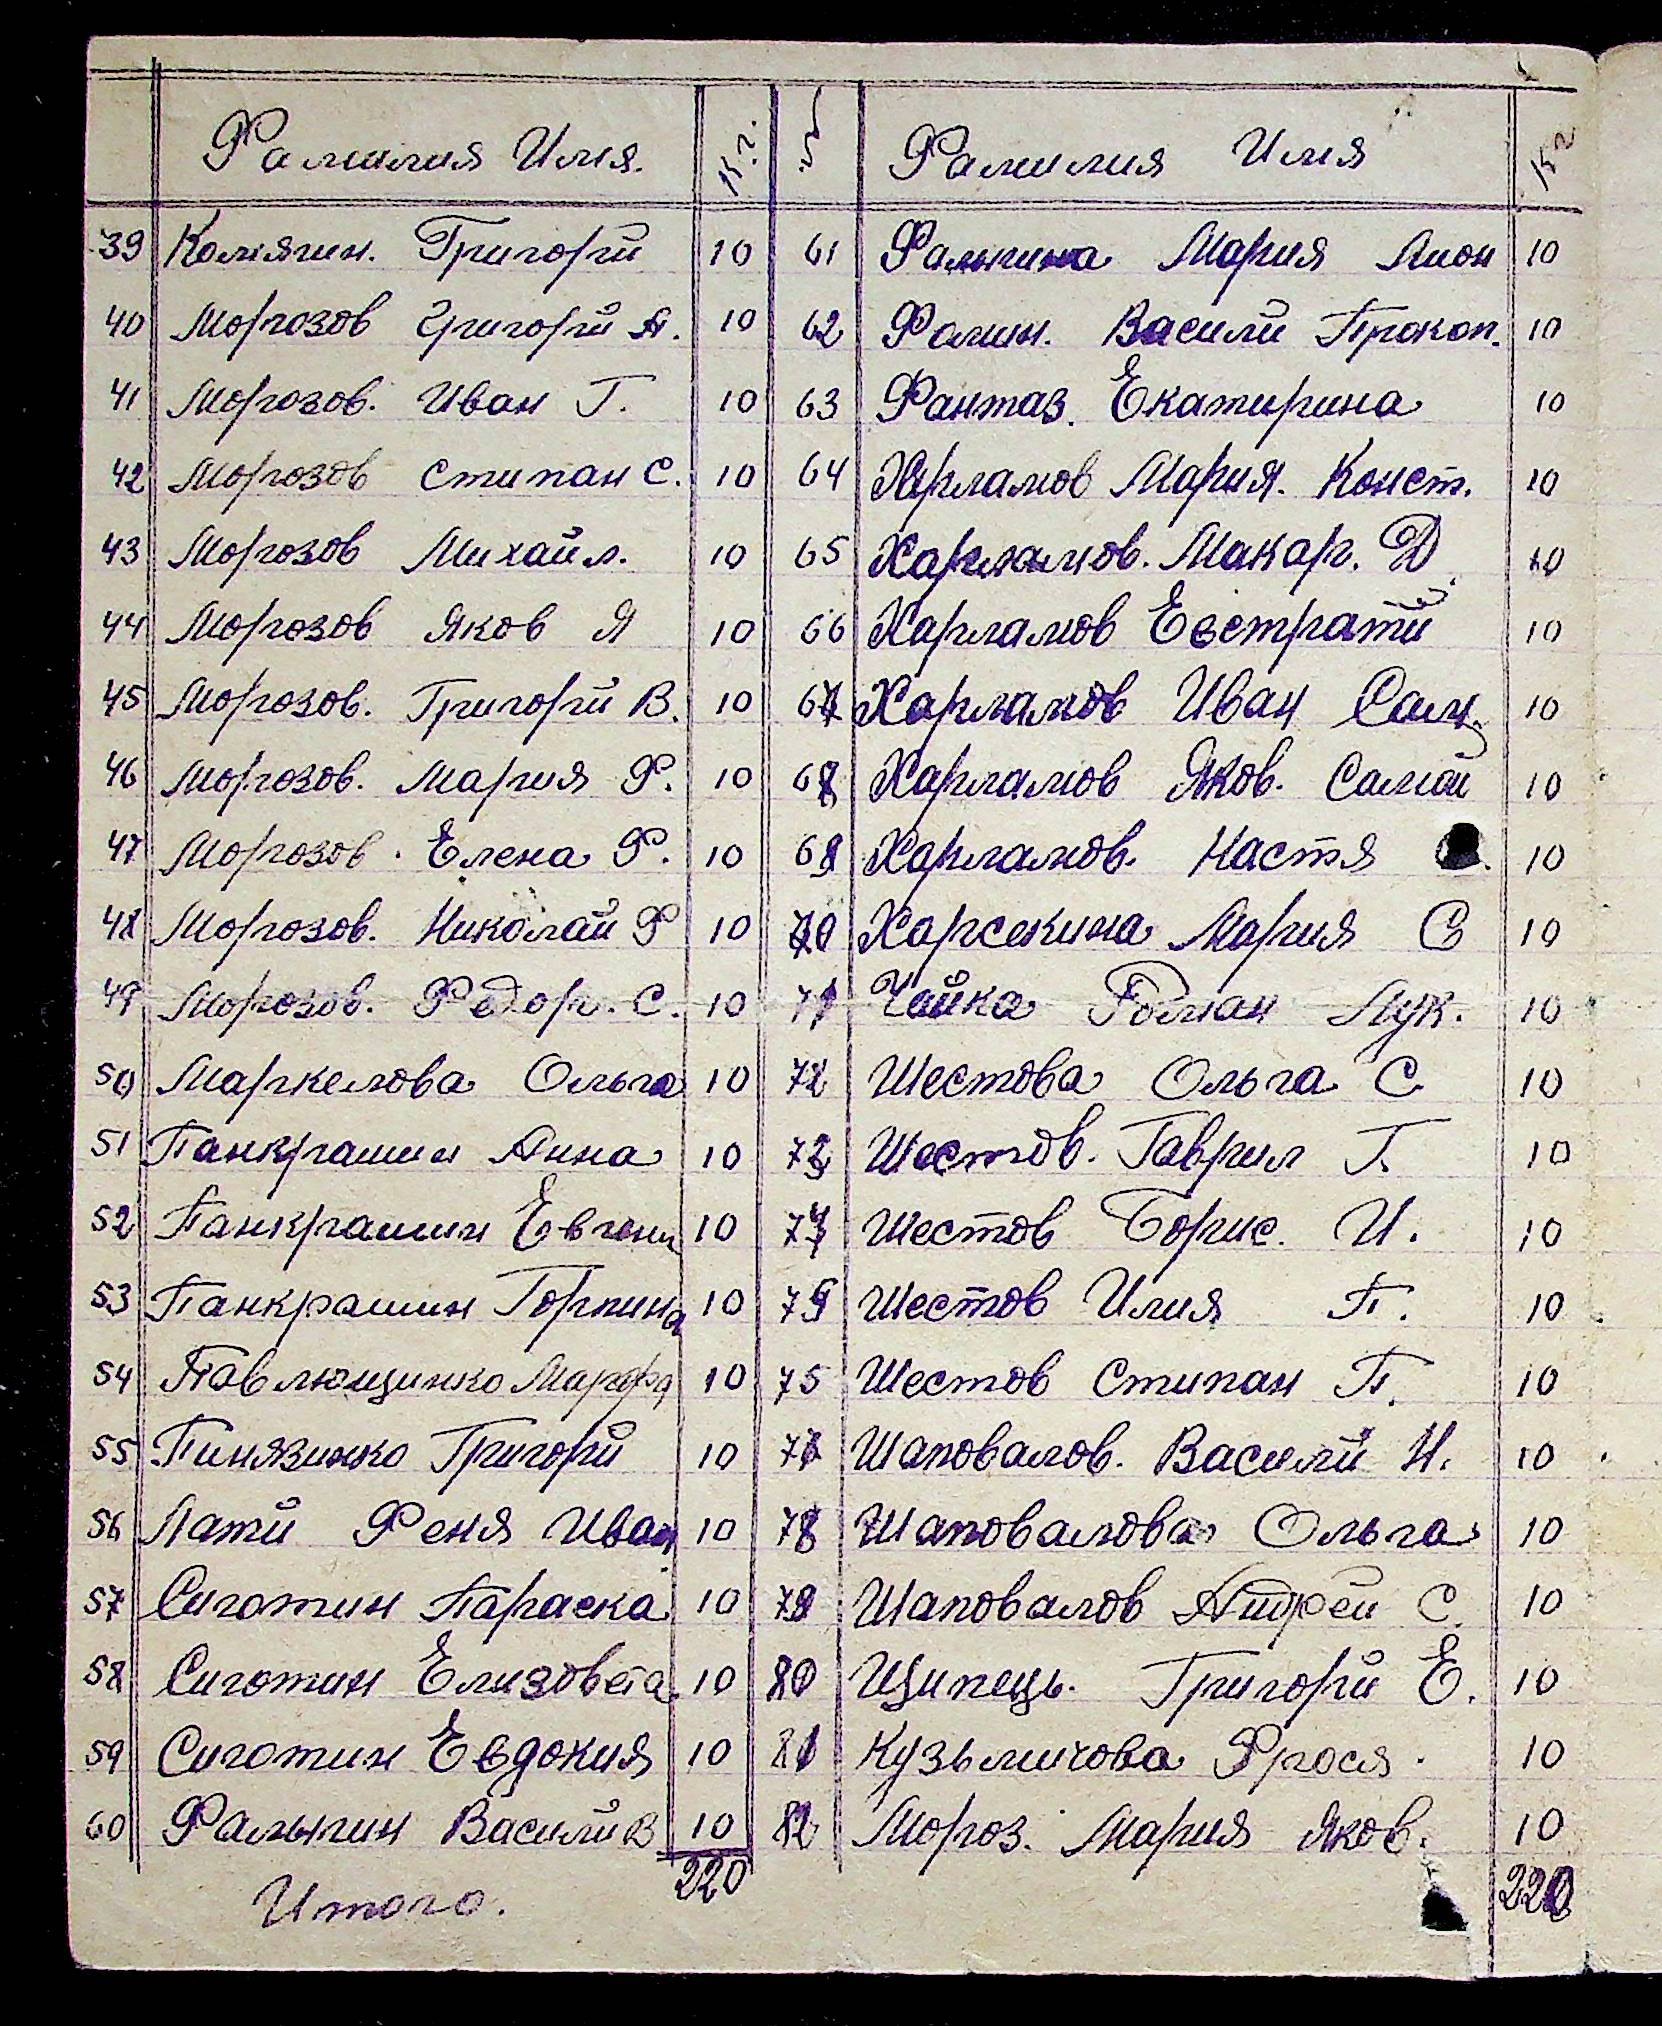 Фамилия Имя. кг.
39 Колягин. Григорй 10
40 Морозов Григорй А. 10
41 Морозов. Иван Г. 10
42 Морозов Стипан С. 10
43 Морозов Михайл. 10
44 Морозов Яков Я 10
45 Морозов. Григорй В. 10
46 Морозов. Мария Ф. 10
47 Морозов. Елена Ф. 10
48 Морозов. Николай Ф 10
49 Морозов. Федор. С. 10
50 Маркелова Ольга 10
51 Панкрашин Анна 10
52 Панкрашин Евгени 10
53 Панкрашин Горпина 10
54 Павлющинко Марфа 10
55 Пинязинко Григорй 10
56 Латй Феня Иван 10
57 Сиготин Параска 10
58 Сиготин Елизовета 10
59 Сиготин Евдокия 10
60 Фалынин Василй В 10
Итого. 220
№ Фамилия Имя кг
61 Фалынина Мария 10
62 Фалин. Василй Прокоп. 10
63 Фантаз. Екатирина 10
64 Харламов Мария. Конст. 10
65 Харламов. Макар. Д 10
66 Харламов Евстратй 10
67 Харламов Иван 10
68 Харламов Яков. Самой 10
69 Харламов. Настя 10
70 Харсекина Мария С 10
71 Чайка Роман Лук. 10
72 Шестова Ольга С 10
73 Шестов. Гаврил Г. 10
74 Шестов Борис. И. 10
75 Шестов Илия П. 10
75 Шестов Стипан П. 10
Шаповалов. Василй Н. 10
78 Шаповалова Ольга 10
79 Шаповалов Андрей С. 10
80 Щипець. Григорй Е. 10
81 Кузьмичова Фрося. 10
82 Мороз. Мария Яков. 10
220